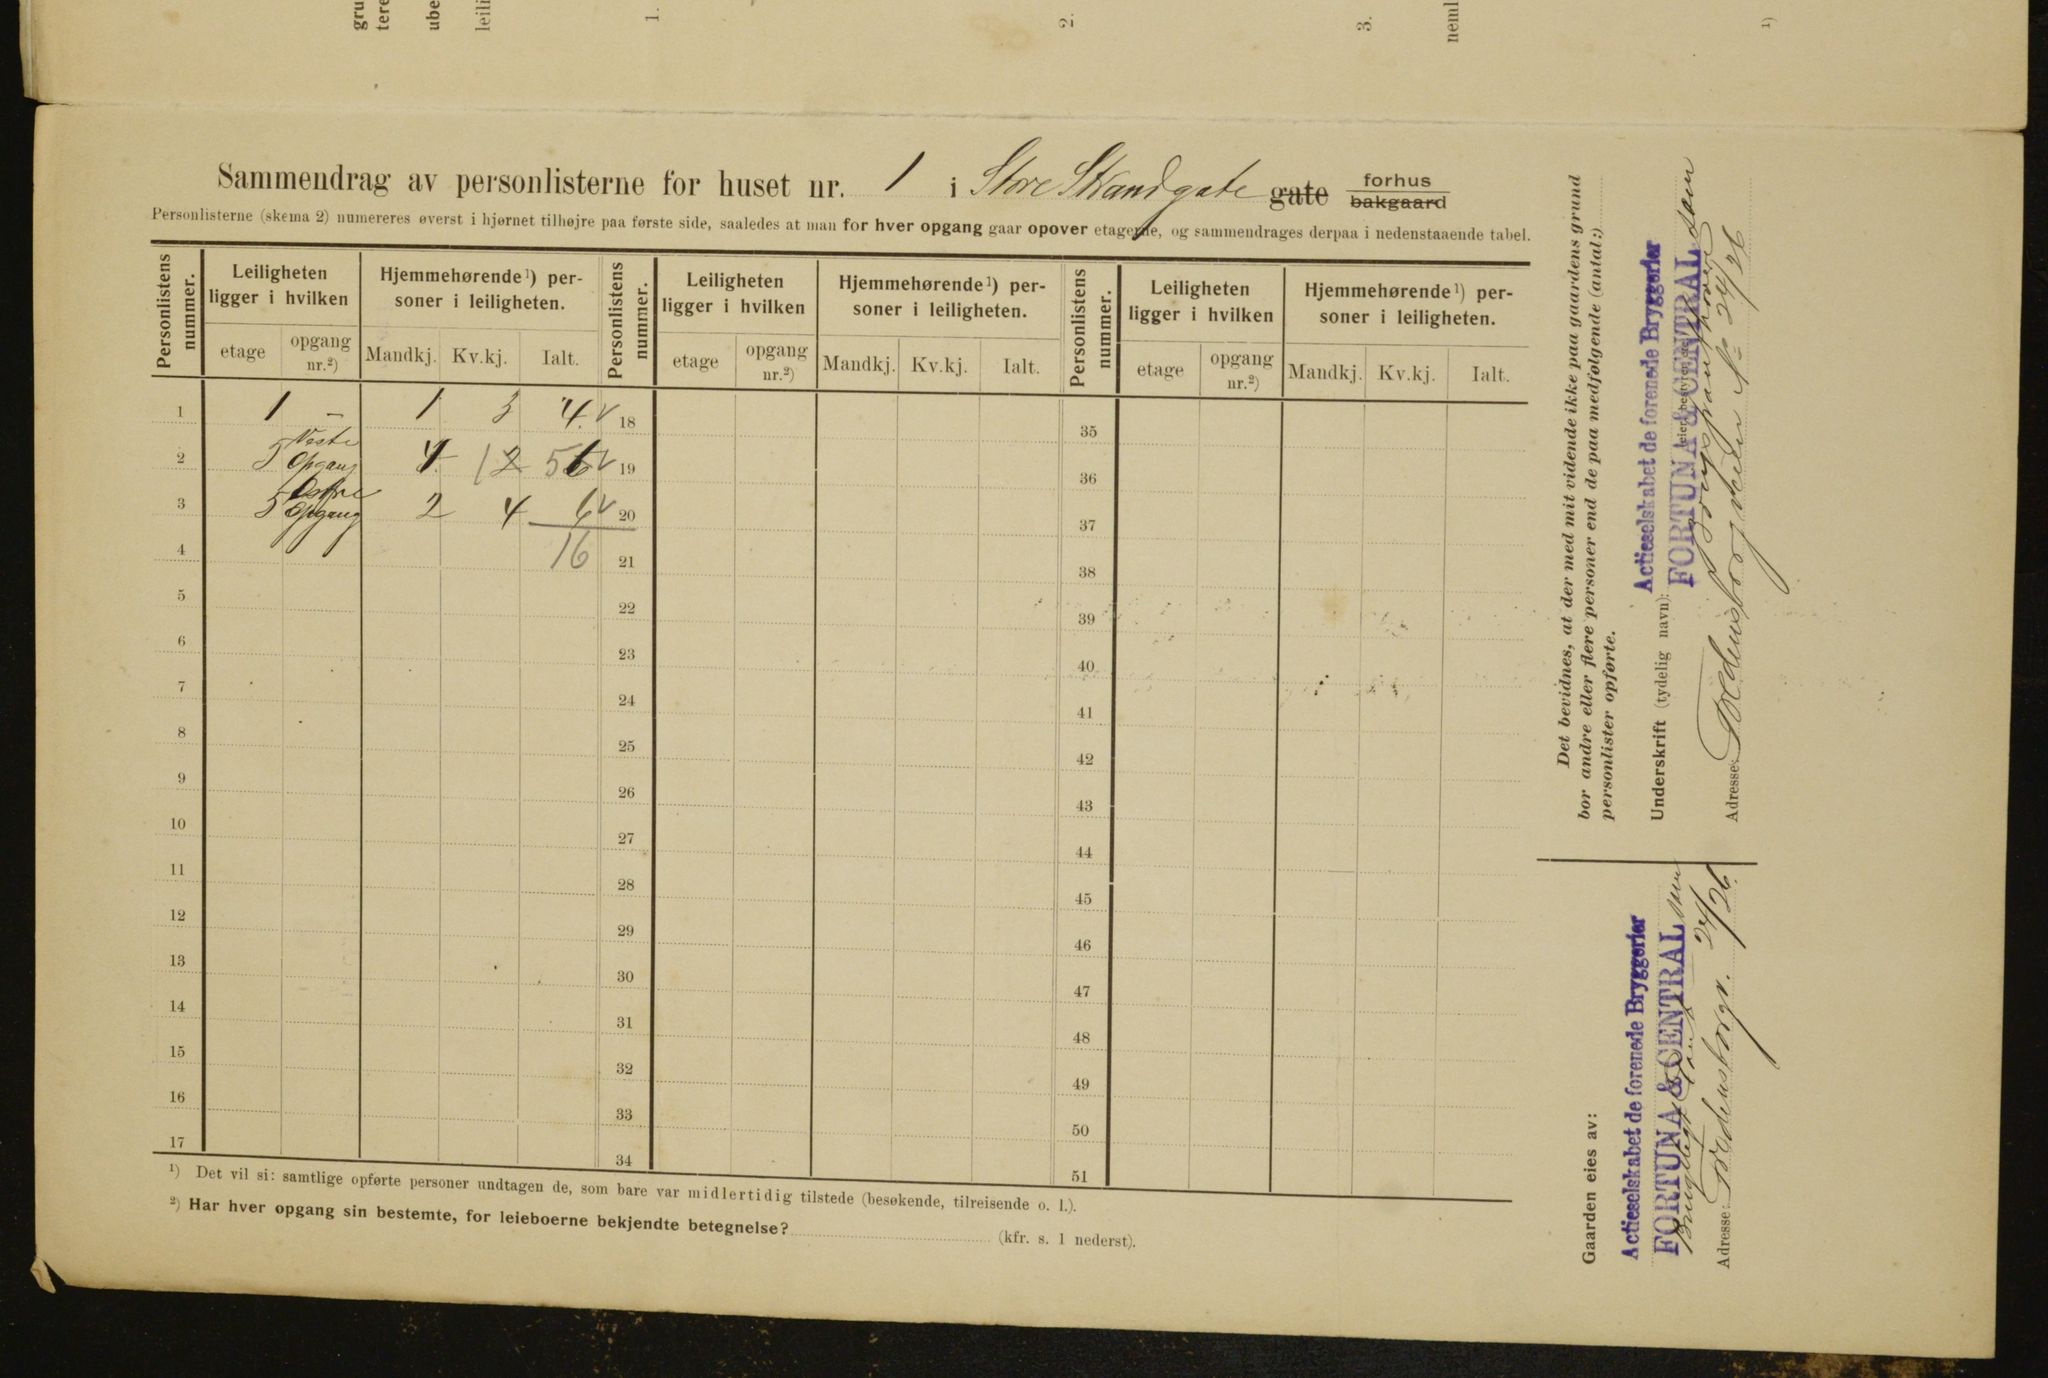 gru
tere
ube
leili
1.
2.
3.
neml
1)
Sammendrag av personlisterne for huset nr. 1 i Store Strandgate gate forhus bakgaard
Personlisterne (skema 2) numereres øverst i hjørnet tilhøjre paa første side, saaledes at man for hver opgang gaar opover etagerne, og sammendrages derpaa i nedenstaaende tabel.
Personlistens nummer.
Leiligheten ligger i hvilken
etage
opgang nr.2)
Hjemmehørende1) personer i leiligheten.
Mandkj.
Kv.kj.
Ialt.
Personlistens nummer.
Leiligheten ligger i hvilken
etage
opgang nr.2)
Hjemmehørende1) personer i leiligheten.
Mandkj.
Kv.kj.
Ialt.
Personlistens nummer.
Leiligheten ligger i hvilken
etage
opgang nr.2)
Hjemmehørende1) personer i leiligheten.
Mandkj.
Kv.kj.
Ialt.
1 1 – 1 3 4 v 18 35
2 5 Vestre Opgang 4 1 2 5 6 v 19 36
3 5 Østre Opgang 2 4 6 v 20 37
4 16 21 38
5 22 39
6 23 40
7 24 41
8 25 42
9 26 43
10 27 44
11 28 45
12 29 46
13 30 47
14 31 48
15 32 49
16 33 50
17 34 51
1) Det vil si: samtlige opførte personer undtagen de, som bare var midlertidig tilstede (besøkende, tilreisende o. l.).
2) Har hver opgang sin bestemte, for leieboerne bekjendte betegnelse? (kfr. s. 1 nederst).
Det bevidnes, at der med mit vidende ikke paa gaardens grund
bor andre eller flere personer end de paa medfølgende (antal:)
personlister opførte.
Actieselskabet de forenede Bryggerier
Underskrift (tydelig navn):
FORTUNA & CENTRAL
Adresse: Fredensborgveien No 24/26
Gaarden eies av:
Actieselskabet de forenede Bryggerier
FORTUNA & CENTRAL
Adresse: Fredensborgv. 24/26.